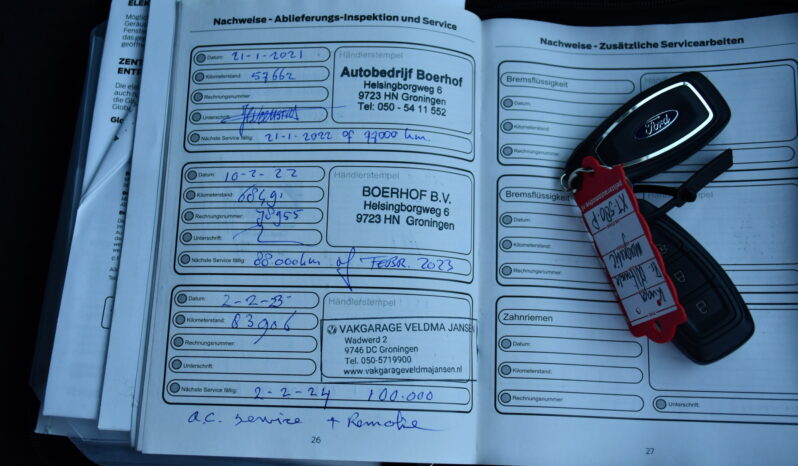 Nachweise - Ablieferungs-Inspektion und Service
Datum: 21-1-2021
Händlerstempel
Kilometerstand: 57662
Autobedrijf Boerhof
Helsingborgweg 6
9723 HN Groningen
Tel: 050 - 54 11 552
Rechnungsnummer:
Unterschrift:
Nächste Service fällig: 21-1-2022 of 77000 km.
Datum: 10-2-22
Händlerstempel
Kilometerstand: 68491
BOERHOF B.V.
Helsingborgweg 6
9723 HN Groningen
Rechnungsnummer: 70955
Unterschrift:
Nächste Service fällig: 88.000km of FEBR. 2023
Datum: 2-2-23
Händlerstempel
Kilometerstand: 83906
VAKGARAGE VELDMA JANSEN
Wadwerd 2
9746 DC Groningen
Tel. 050-5719900
www.vakgarageveldmajansen.nl
Rechnungsnummer:
Unterschrift:
Nächste Service fällig: 2-2-24 100.000
a.c. service + Remolie
26
Nachweise - Zusätzliche Servicearbeiten
Bremsflüssigkeit
Datum:
Kilometerstand:
Rechnungsnummer:
Bremsflüssigkeit
Datum:
Kilometerstand:
Rechnungsnummer:
Zahnriemen
Datum:
Kilometerstand:
Rechnungsnummer:
Unterschrift:
27
Ford
XT-580-P
Kuga